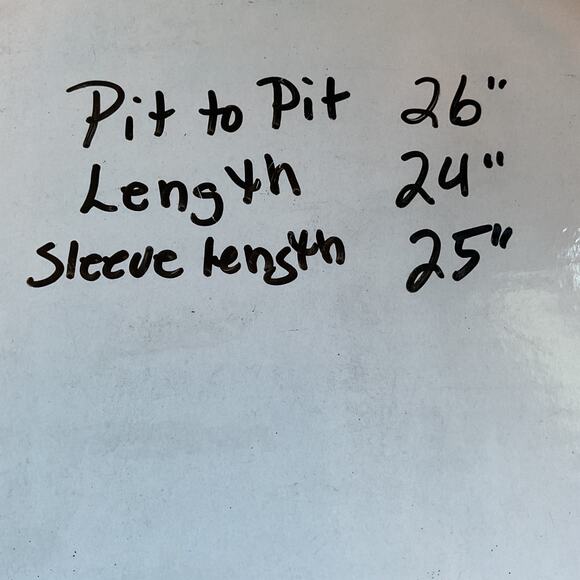 Pit to Pit 26"
Length 24"
Sleeve length 25"